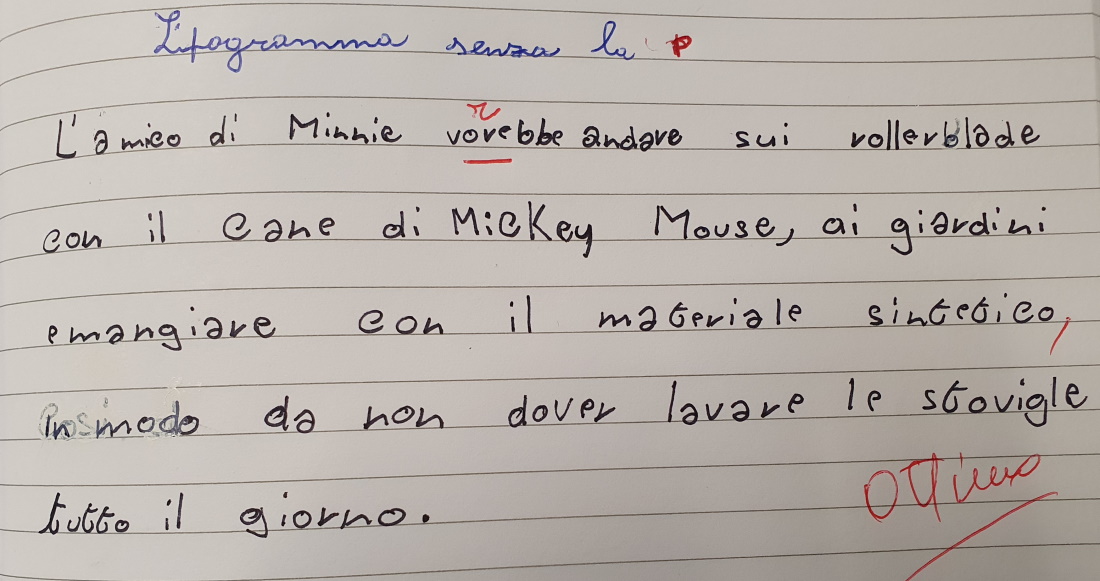 Lipogramma senza la p
L'amico di Minnie vorebbe andare sui rollerblade
r
con il cane di Mickey Mouse, ai giardini
emangiare con il materiale sintetico,
in modo da non dover lavare le stovigle
tutto il giorno.
Ottimo